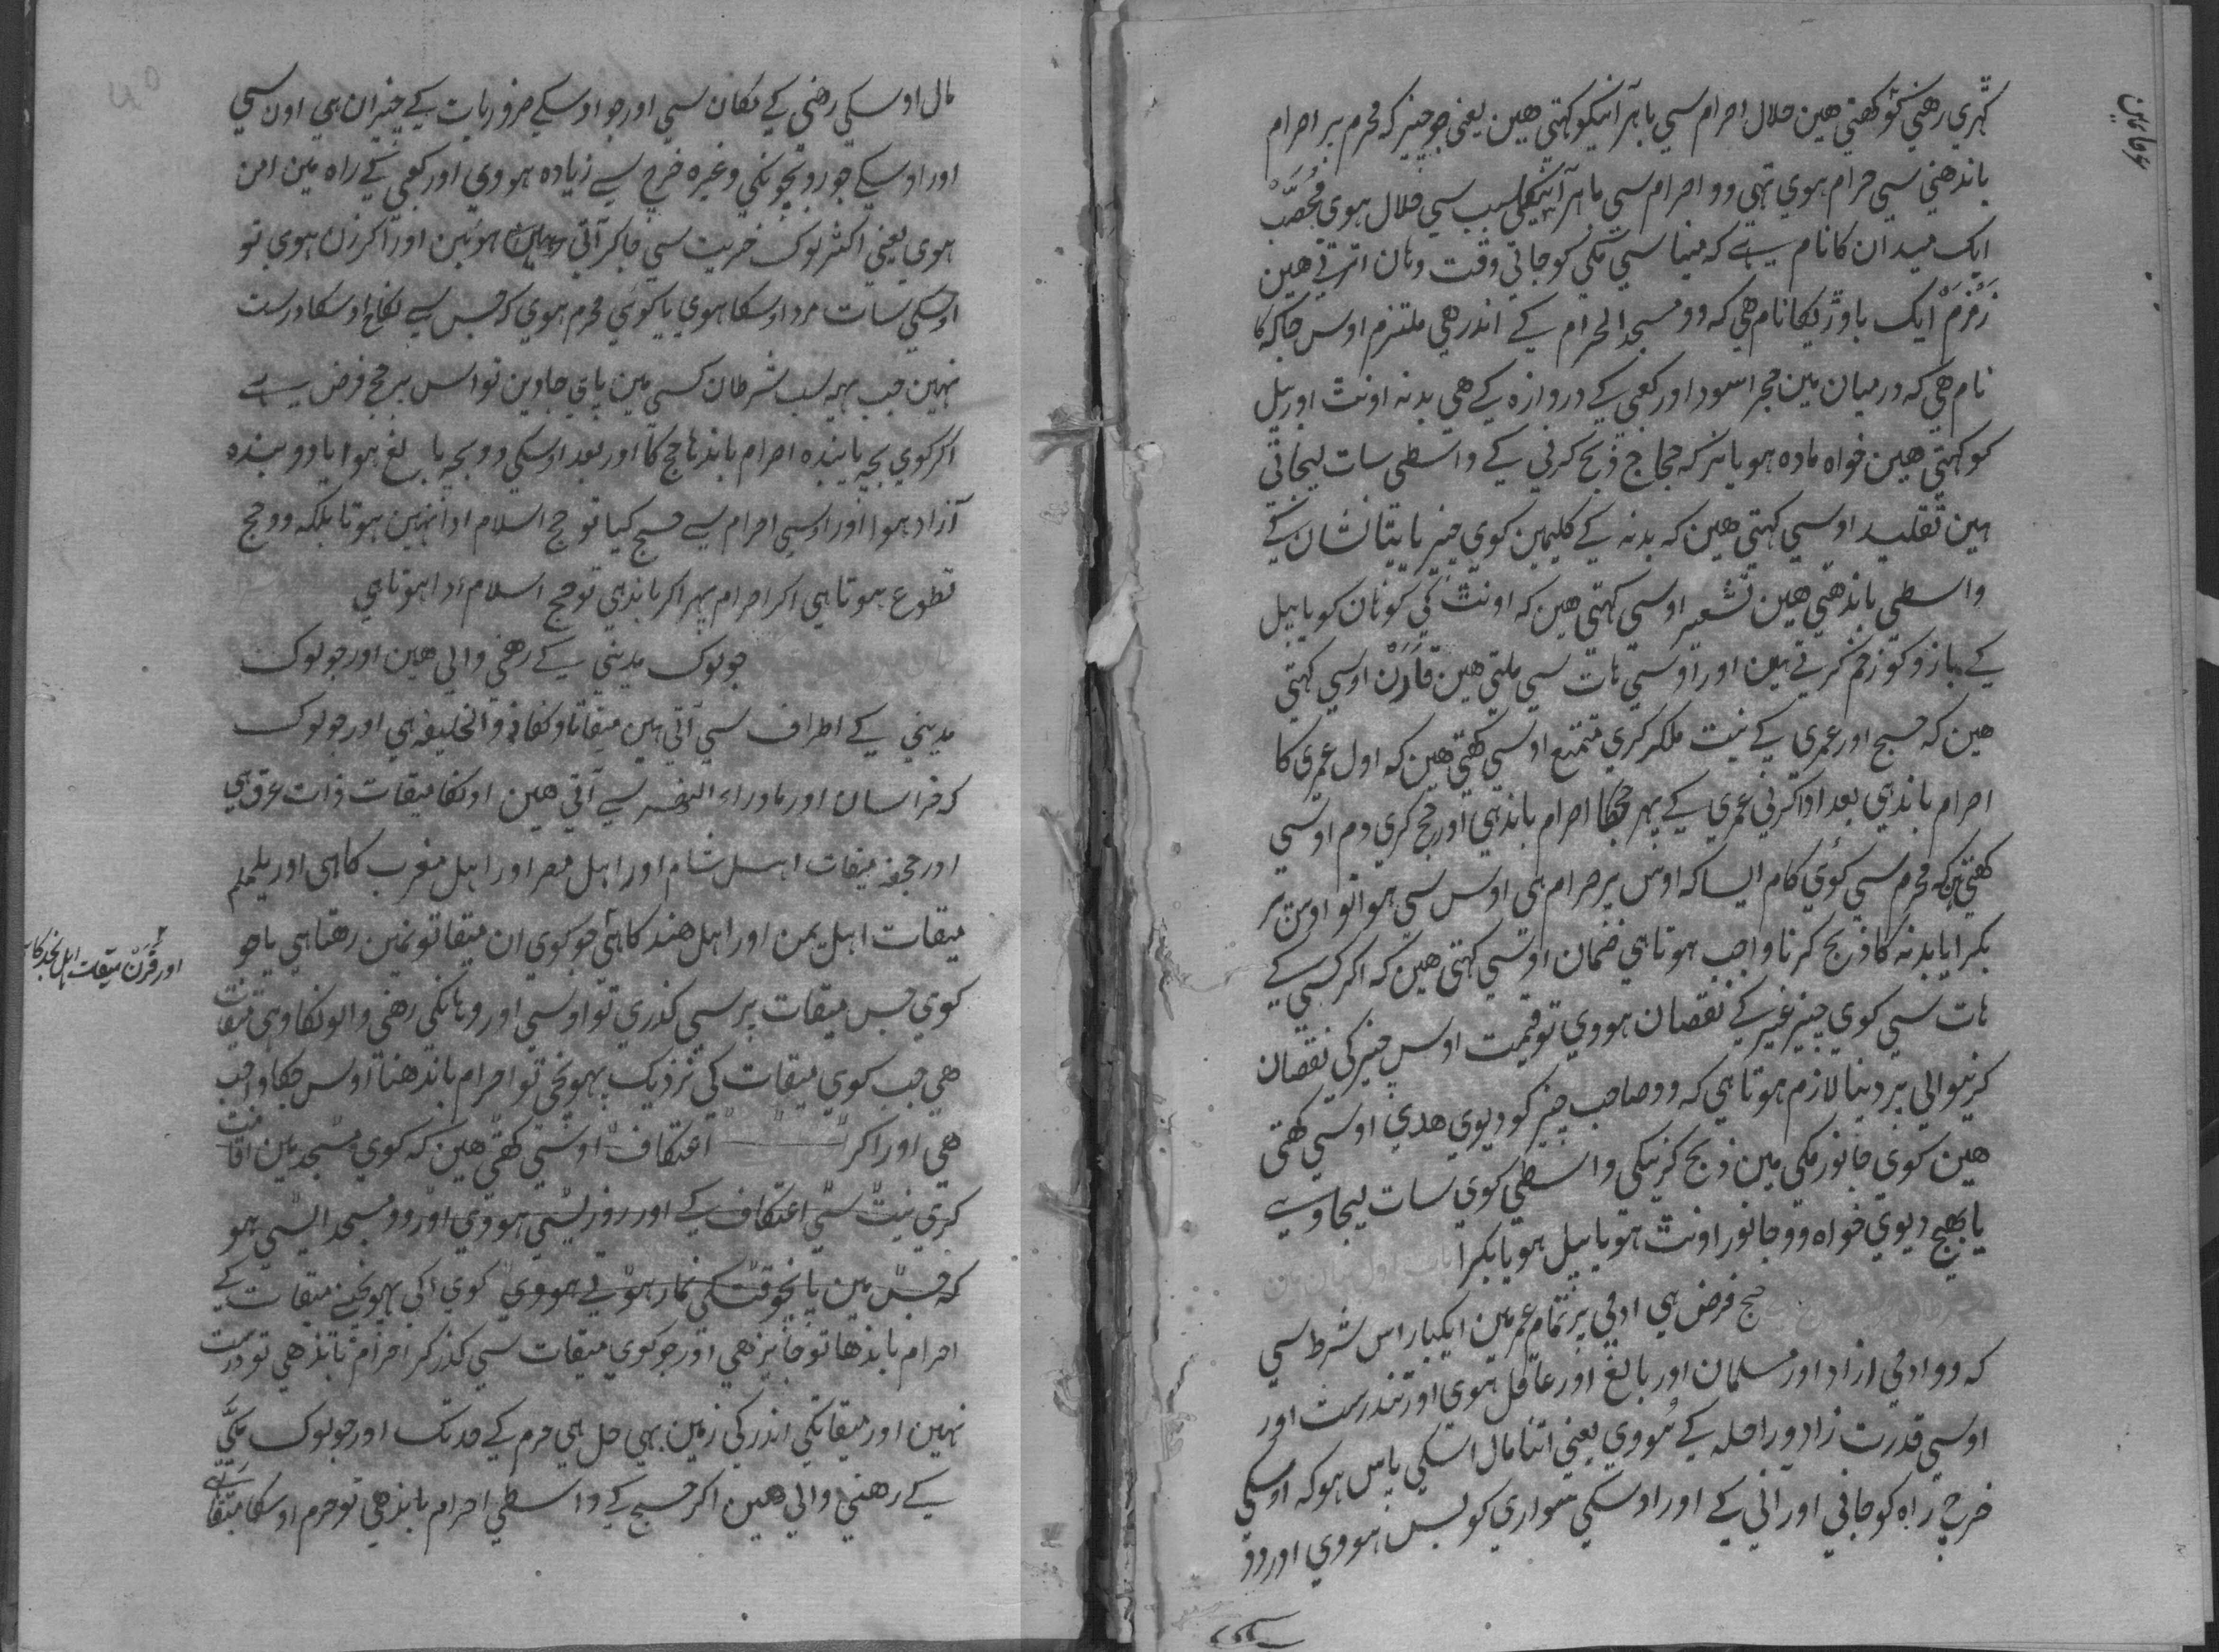 کہڑی رھنی کو کھتی ھین حلال احرام سی باہر آنیکو کہتی ھین یعنی جو چیز کہ محرم پر احرام
باندھنی سی حرام ہوی تہی وو احرام سی باہر آنیکی سبب سی حلال ہوی مُحَصَّب
ایک میدان کا نام ہے کہ مینا سی مکی کو جاتی وقت وہان اترتی ھین
زمزم ایک باوڑیکا نام ھی کہ وو مسجد الحرام کے اندر ھی ملتزم اوس جاکہ کا
نام ھی کہ درمیان مین حجر اسود اور کعبی کے دروازہ کے ھی بدنہ اونٹ اور بیل
کو کہتی ھین خواہ مادہ ہو یا نر کہ حجاج ذبح کرنی کے واسطی سات لیجاتی
ہین تقلید اوسی کہتی ھین کہ بدنہ کے کلیمین کوی چیز یا پتا نشان کے
واسطی باندھتی ھین تشعیر اوسی کہتی ھین کہ اونٹ کی کوہان کو یا بیل
کے بازو کو زخم کرتے ہین اور اوسی ہات سی ملتی ھین قارن اوسی کہتی
ھین کہ حج اور عمری کے نیت ملکر کری متمتع اوسی کھتی ھین کہ اول عمری کا
احرام باندہی بعد ادا کرنی عمری کے پہر حجکا احرام باندہی اور حج کری دم اوسی
کھتی ہین کہ محرم سی کوئی کام ایسا کہ اوس پر حرام ہی اوس سی ہوا تو اوس پر
بکرا یا بدنہ کا ذبح کرنا واجب ہوتا ہی ضمان اوسی کہتی ھین کہ اکر کسی کے
ہات سی کوی چیز غیر کے نقصان ہووی تو قیمت اوس چیز کی نقصان
کرنیوالی پر دینا لازم ہوتا ہی کہ وو صاحب چیز کو دیوی ھدی اوسی کھتی
ھین کوی جانور مکی مین ذبح کرنیکی واسطی کوی سات لیجاوے
یا بھیج دیوی خواہ وو جانور اونٹ ہو یا بیل ہو یا بکرا
حج فرض ہی ادمی پر تمام عمر مین ایکبار اس شرط سی
کہ وو ادمی ازاد اور مسلمان اور بالغ اور عاقل ہوی اور تندرست اور
اوسی قدرت زاد و راحلہ کے ہووی یعنی اتنا مال اسکی پاس ہو کہ اوسکی
خرچ راہ کو جانی اور آنی کے اور اوسکی سواری کو بس ہووی اور وو
مال اوسکی رھنی کے مکان سی اور جو اوسکے ضروریات کے چیزان ہی اون سی
اور اوسکے جورو بچونکی وغیرہ خرچ سے زیادہ ہووی اور کعبی کے راہ مین امن
ہوی یعنی اکثر لوک خریت سی جاکر آتی ہوئین اور اکر زن ہوی تو
اوسکی سات مرد اوسکا ہوی یا کوئی محرم ہوی کہ جس سے نکاح اوسکا درست
نہین جب یہہ سب شرطان کسی مین پای جاوین تو اس پر حج فرض ہے
اکر کوی بچہ یا بندہ احرام باندہا حج کا اور بعد اوسکی وو بچہ بالغ ہوا یا وو بندہ
آزاد ہوا اور اوسی احرام سے حج کیا تو حج اسلام ادا نہین ہوتا بلکہ وو حج
تطوع ہوتا ہی اکر احرام پہر اکر باندہی تو حج اسلام ادا ہوتا ہی
جو لوک مدینی کے رھنی والی ھین اور جو لوک
مدینی کے اطراف سی آتی ہین میقات اونکا ذوالحلیفہ ہی اور جو لوک
کہ خراسان اور ماوراء النھر سے آتی ھین اونکا میقات ذات عرق ہی
اور جحفہ میقات اہل شام اور اہل مصر اور اہل مغرب کا ہی اور یلملم
میقات اہل یمن اور اہل ھند کا ہی جو کوی ان میقاتونمین رھتا ہی یا جو
اور قرن میقات اہل نجد کا
کوی جس میقات پر سی کذری تو اوسی اور وہانکی رھنی والونکا وہی میقات
ھی جب کوی میقات کی نزدیک پہونچی تو احرام باندھنا اوس جکا واجب
ھی اور اکر اعتکاف اوسی کھتی ھین کہ کوی مسجد مین اقامت
کری نیت سی اعتکاف کے اور روزیسی ہووی اور وو مسجد ایسی ہو
کہ جس مین پانچوقتکی نماز ہوتی ہووی کوی اکی پہونچنی میقات کے
احرام باندھا تو جایز ھی اور جو کوی میقات سی کذر کر احرام باندھی تو درست
نہین اور میقاتکی اندر کی زمین بہی حل ہی حرم کے حد تک اور جو لوک مکّی
کے رھنی والی ھین اکر حج کے واسطی احرام باندھی تو حرم اوسکا میقات ہے